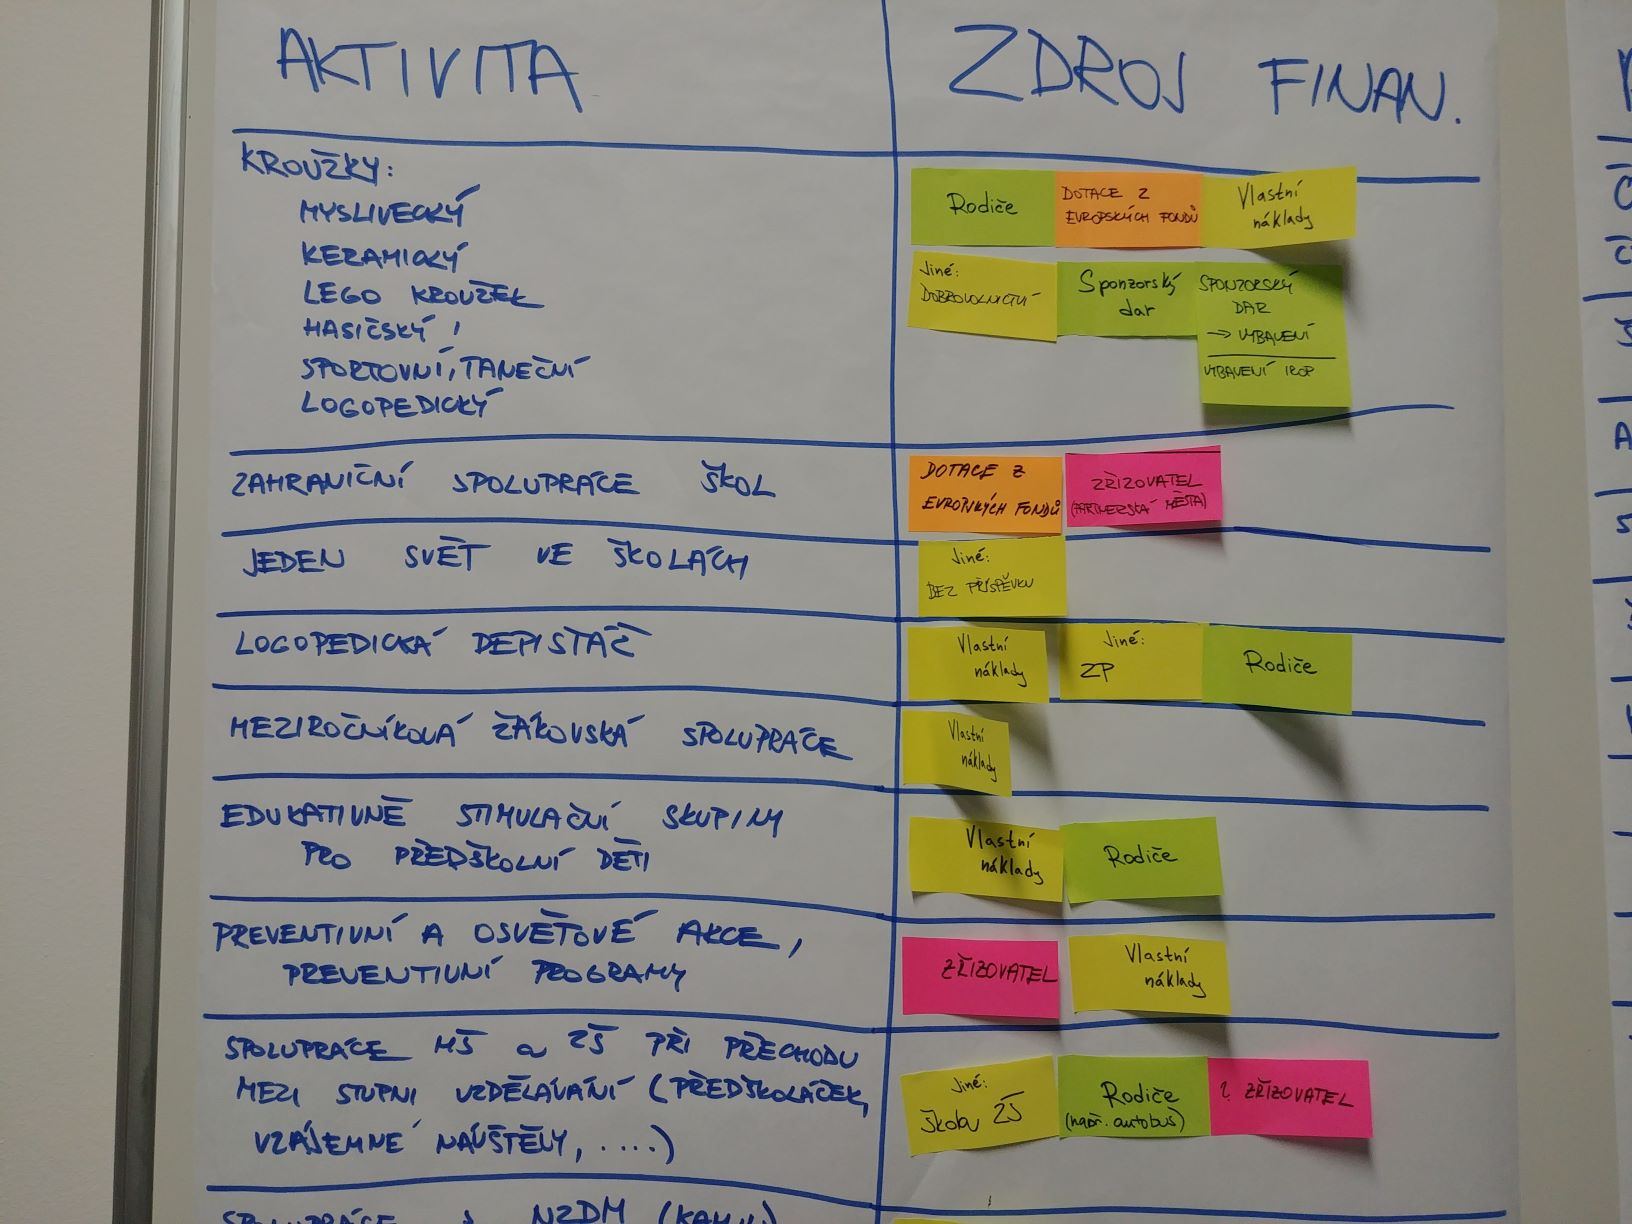 AKTIVITA
ZDROJ FINAN.
KROUŽKY:
MYSLIVECKÝ
KERAMICKÝ
LEGO KROUŽEK
HASIČSKÝ
SPORTOVNÍ, TANEČNÍ
LOGOPEDICKÝ
Rodiče
DOTACE Z
EVROPSKÝCH FONDŮ
Vlastní
náklady
Jiné:
DOBROVOLNICTVÍ
Sponzorský
dar
SPONZORSKÝ
DAR
→ VYBAVENÍ
VYBAVENÍ IROP
ZAHRANIČNÍ SPOLUPRÁCE ŠKOL
DOTACE Z
EVROPSKÝCH FONDŮ
ZŘIZOVATEL
(PARTNERSKÁ MĚSTA)
JEDEN SVĚT VE ŠKOLÁCH
Jiné:
BEZ PŘÍSPĚVKU
LOGOPEDICKÁ DEPISTÁŽ
Vlastní
náklady
Jiné:
ZP
Rodiče
MEZIROČNÍKOVÁ ŽÁKOVSKÁ SPOLUPRÁCE
Vlastní
náklady
EDUKATIVNĚ STIMULAČNÍ SKUPINY
PRO PŘEDŠKOLNÍ DĚTI
Vlastní
náklady
Rodiče
PREVENTIVNÍ A OSVĚTOVÉ AKCE,
PREVENTIVNÍ PROGRAMY
ZŘIZOVATEL
Vlastní
náklady
SPOLUPRÁCE MŠ a ZŠ PŘI PŘECHODU
MEZI STUPNI VZDĚLÁVÁNÍ (PŘEDŠKOLÁČEK,
VZÁJEMNÉ NÁVŠTĚVY, ....)
Jiné:
škola ZŠ
Rodiče
(např. autobus)
? ZŘIZOVATEL
SPOLUPRÁCE S NZDM